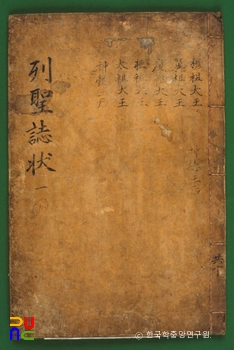 穆祖大王
翼祖大王
度祖大王
桓祖大王
太祖大王
列聖誌状 一
ⓒ 한국학중앙연구원